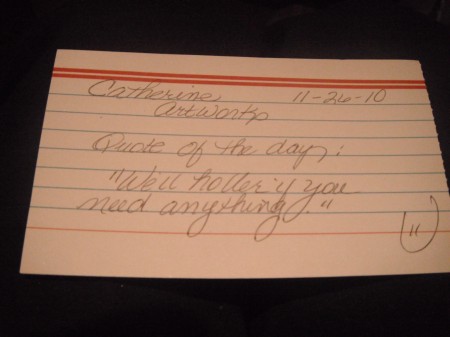 Catherine 11-26-10
Artworks
Quote of the day:
"Well holler if you
need anything."
11